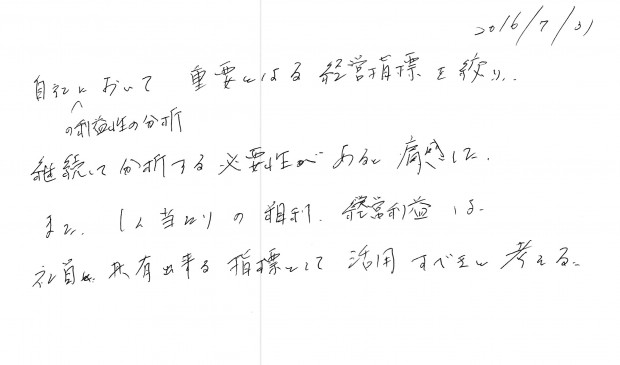 2016/7/31
自社において 重要となる経営指標を絞り、
の利益性の分析
継続して分析する必要性があると痛感した。
また、1人当たりの粗利、経営利益は、
社員と共有出来る指標として活用すべきと考える。